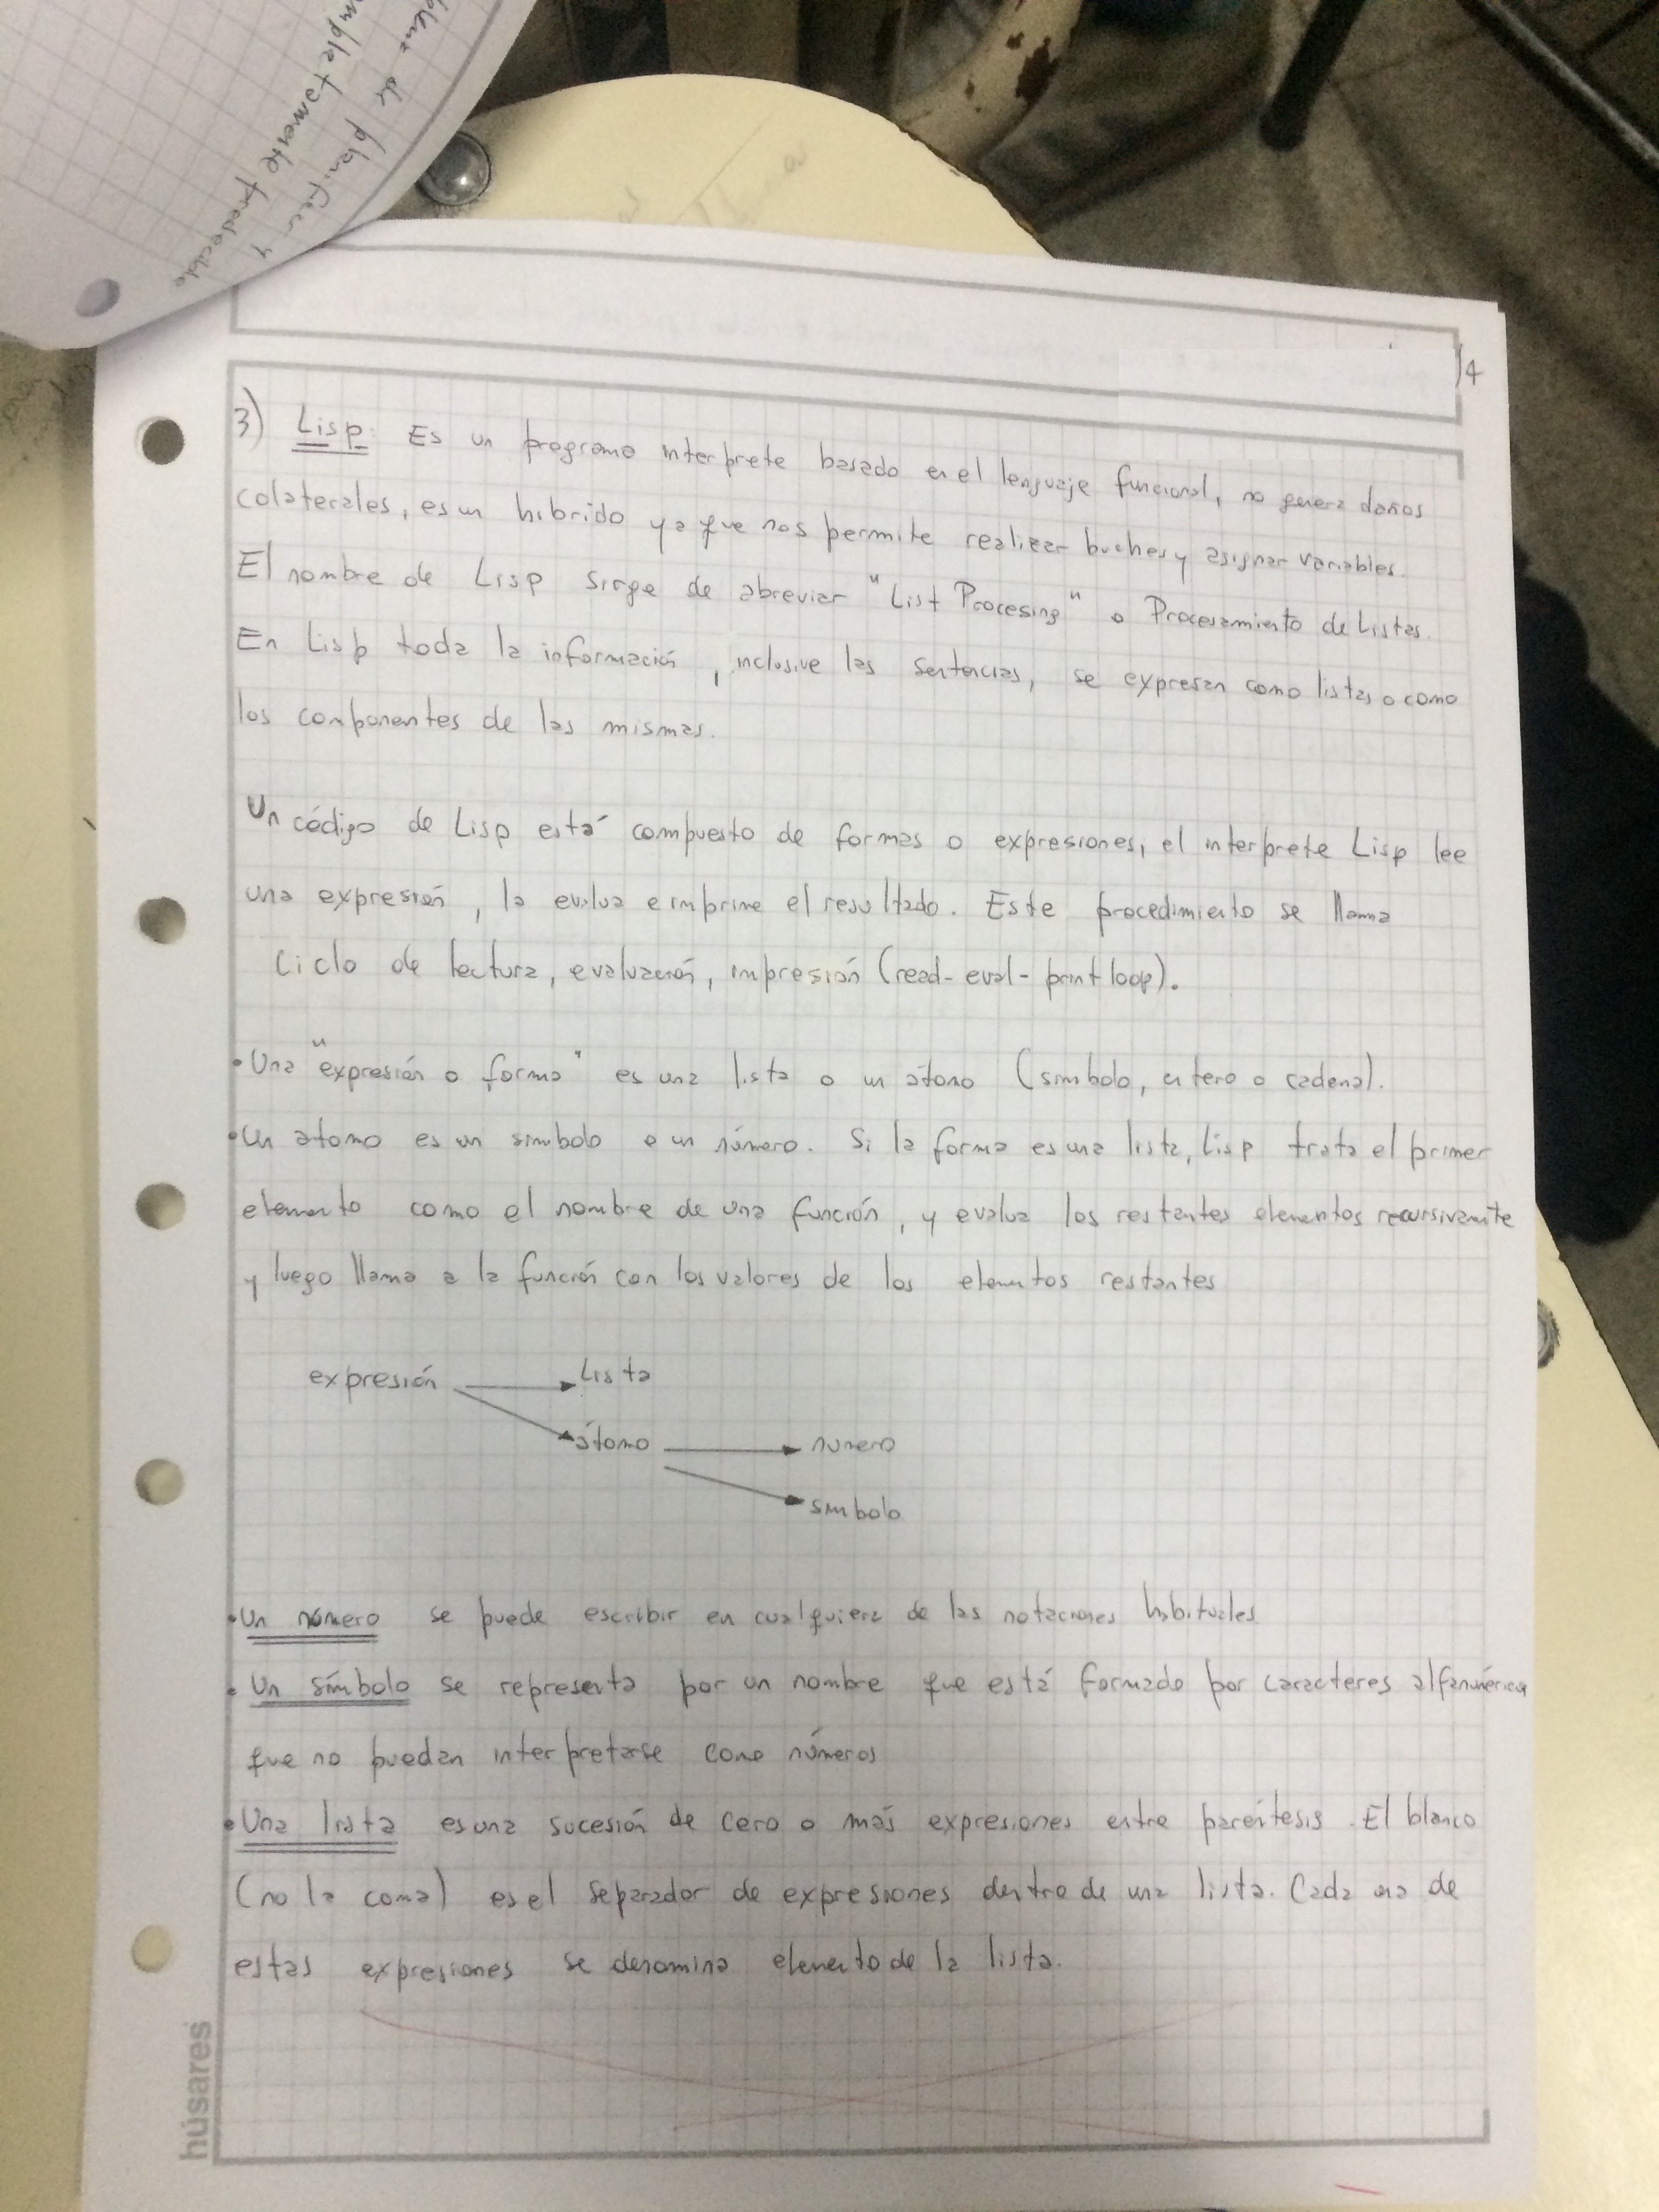 de planificar y
completamente predecible
4
3) Lisp: Es un programa interprete basado en el lenguaje funcional, no genera daños
colaterales, es un hibrido ya que nos permite realizar buches y asignar variables.
El nombre de Lisp sirge de abreviar "List Procesing" o Procesamiento de Listas.
En Lisp toda la información, inclusive las sentencias, se expresan como listas o como
los componentes de las mismas.
Un código de Lisp está compuesto de formas o expresiones, el interprete Lisp lee
una expresión, la evalua e imprime el resultado. Este procedimiento se llama
Ciclo de lectura, evaluación, impresión (read-eval-print loop).
• Una "expresión o forma" es una lista o un átomo (simbolo, entero o cadena).
• Un atomo es un simbolo o un número. Si la forma es una lista, Lisp trata el primer
elemento como el nombre de una función, y evalua los restantes elementos recursivamente
y luego llama a la función con los valores de los elementos restantes
expresión → Lista
átomo → número
simbolo
• Un número se puede escribir en cualquiera de las notaciones habituales
• Un símbolo se representa por un nombre que está formado por caracteres alfanuméricos
que no puedan interpretarse como números
• Una lista es una sucesión de cero o más expresiones entre paréntesis. El blanco
(no la coma) es el separador de expresiones dentro de una lista. Cada una de
estas expresiones se denomina elemento de la lista.
húsares